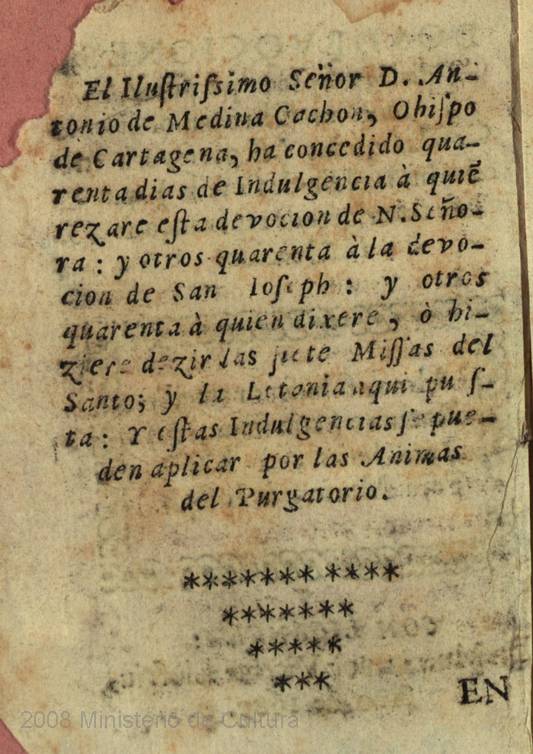 El Iluſtriſsimo Señor D. An-
tonio de Medina Cachon, Obiſpo
de Cartagena, ha concedido qua-
renta dias de Indulgencia à quiẽ
rezare eſta devocion de N. Seño-
ra : y otros quarenta à la devo-
cion de San Ioſeph : y otros
quarenta à quien dixere, ò hi-
ziere dezir las ſiete Miſſas del
Santo; y la Letania aqui pu ſ-
ta: Y eſtas Indulgencias ſe pue-
den aplicar por las Animas
del Purgatorio.
******* ****
*******
*****
***
EN
2008 Ministerio de Cultura